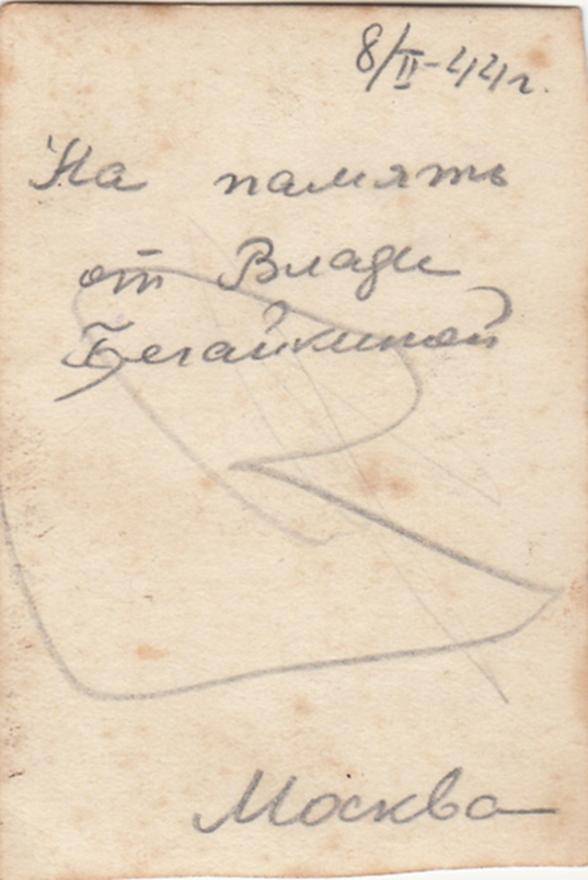 8/II-44г.
На память
от Влади
Бегайкиной
Москва